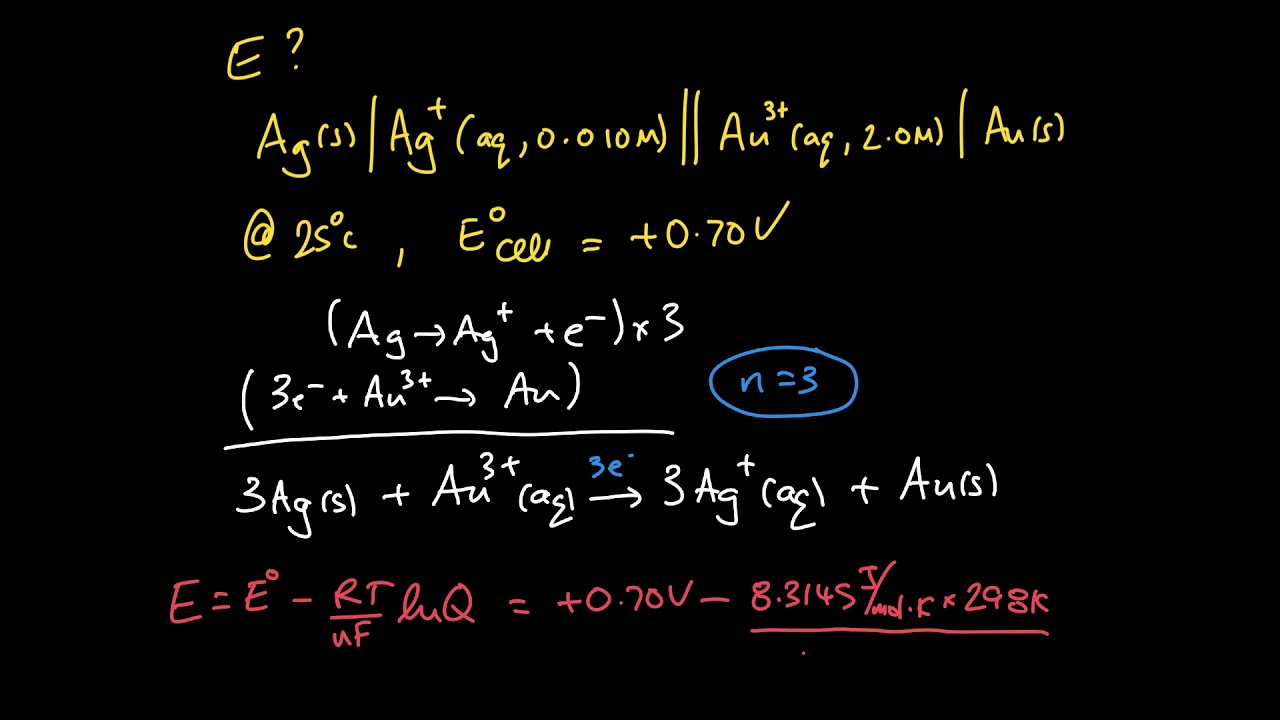 E ?
Ag(s) | Ag⁺ (aq, 0.010M) || Au³⁺ (aq, 2.0M) | Au(s)
@ 25°C , E°cell = +0.70V
(Ag → Ag⁺ + e⁻) × 3
(3e⁻ + Au³⁺ → Au)
n = 3
3Ag(s) + Au³⁺(aq) 3e⁻ → 3Ag⁺(aq) + Au(s)
E = E° − RT/nF lnQ = +0.70V − 8.3145 J/mol.K × 298K